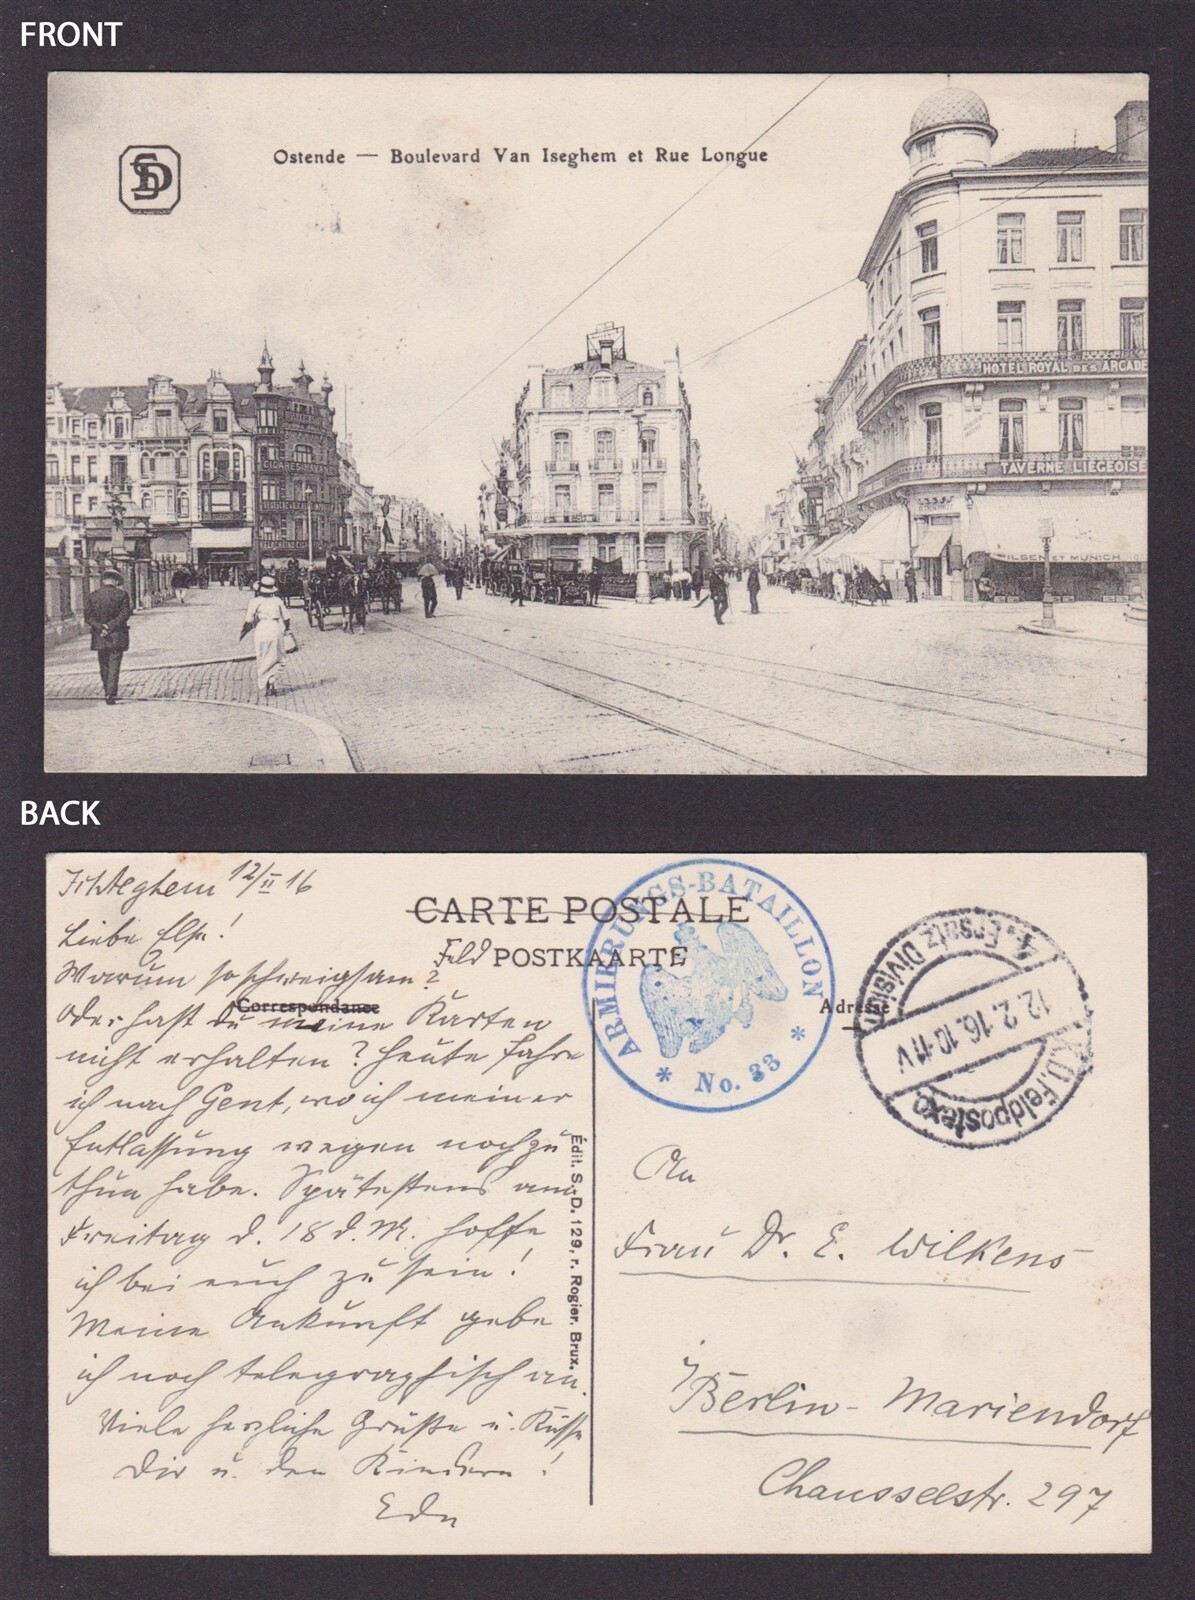 FRONT
SD
Ostende — Boulevard Van Iseghem et Rue Longue
HOTEL ROYAL DES ARCADE
CIGARES HAVANE
TAVERNE LIEGEOISE
PILSEN ET MUNICH
BACK
Ichteghem 12/II 16
CARTE POSTALE
Feld POSTKAARTE
Correspondance
Adresse
ARMIERUNGS-BATAILLON
* No. 33 *
1. Ersatz Division
12.2.16.10-11V
K.D. Feldpostexp
Liebe Else!
Warum so schweigsam?
Oder hast du meine Karten
nicht erhalten? Heute fahre
ich nach Gent, wo ich meiner
Entlassung wegen noch zu
thun habe. Spätestens am
Freitag d. 18 d. M. hoffe
ich bei euch zu sein!
Meine Ankunft gebe
ich noch telegraphisch an.
Viele herzliche Grüße u. Küsse
Dir u. den Kindern!
Édit. S.-D. 129, r. Rogier. Brux.
An
Frau Dr. E. Wilkens
Berlin - Mariendorf
Chausseestr. 297